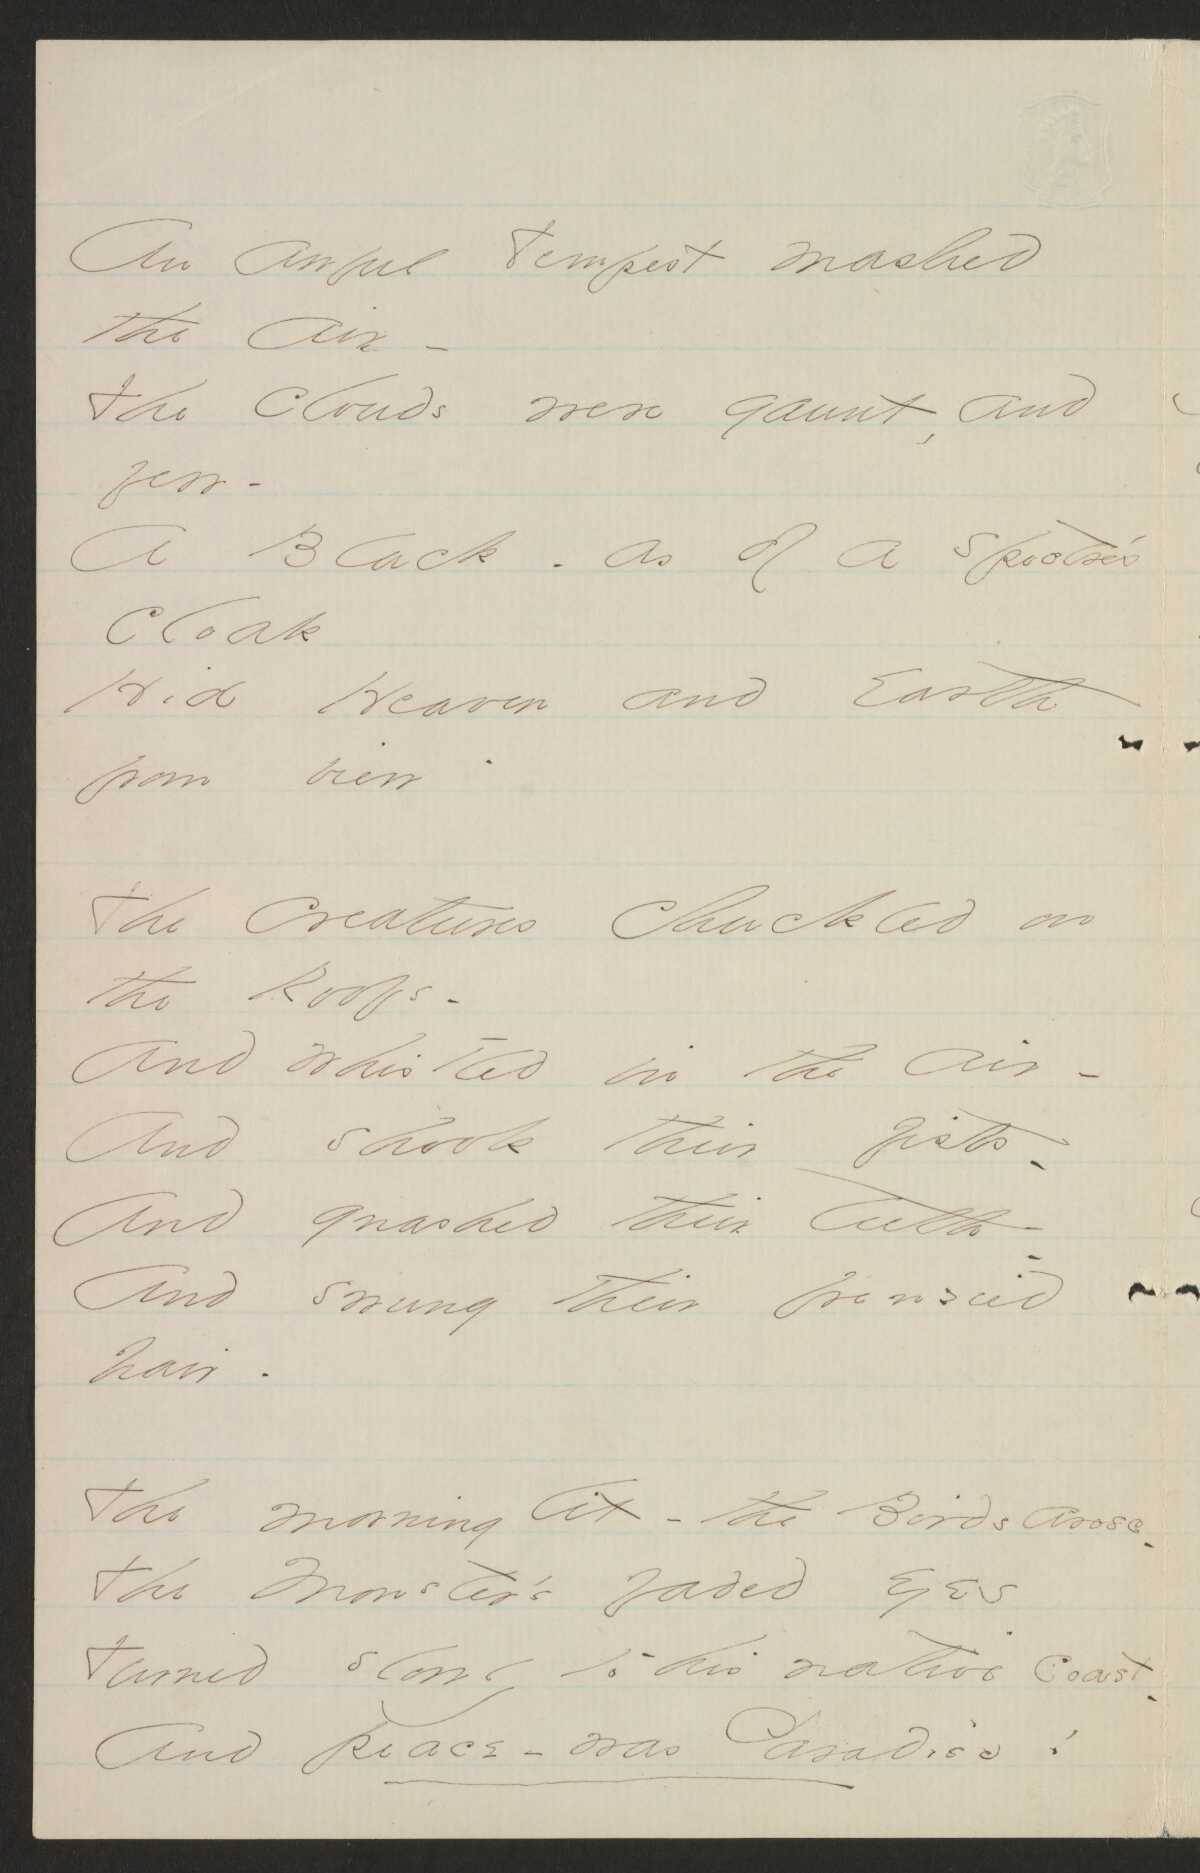 An awful Tempest mashed
the air -
The clouds were gaunt, and
few -
A Black - as of a spectre's
cloak
Hid Heaven and Earth
from view .
The creatures chuckled on
the Roofs -
And whistled in the air -
And shook their fists -
And gnashed their teeth -
And swung their frenzied
hair .
The morning lit - the Birds arose -
The Monster's faded eyes
Turned slowly to his native coast -
And peace - was Paradise !